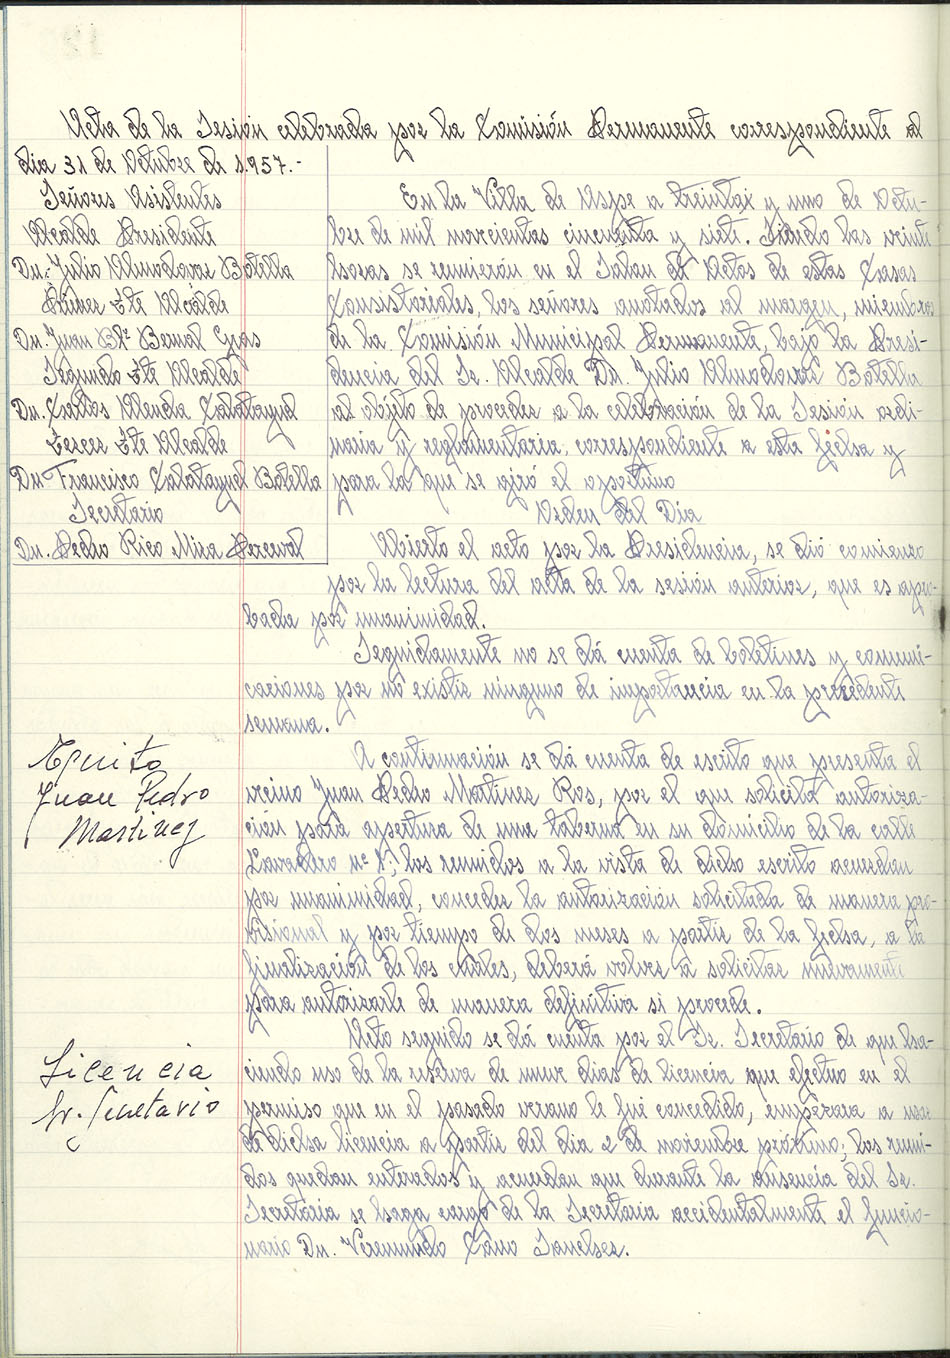 Acta de la Sesión celebrada por la Comisión Permanente correspondiente al
dia 31 de Octubre de 1.957.-
Señores Asistentes
Alcalde Presidente
Dn. Julio Almodovar Botella
Primer Tte Alcalde
Dn. Juan Bta. Bernal Gras
Segundo Tte Alcalde
Dn. Carlos Alenda Calatayud
Tercer Tte Alcalde
Dn Francisco Calatayud Botella
Secretario
Dn. Pedro Rico Mira Perceval
En la Villa de Aspe a treinta y uno de Octu-
bre de mil novecientos cincuenta y siete. Siendo las veinte
horas se reunieron en el Salon de Actos de estas Casas
Consistoriales, los señores anotados al margen, miembros
de la Comisión Municipal Permanente, bajo la Presi-
dencia del Sr. Alcalde Dn. Julio Almodovar Botella
al objeto de proceder a la celebración de la Sesión ordi-
naria y reglamentaria, correspondiente a esta fecha y
para la que se giró el oportuno
Orden del Dia
Abierto el acto por la Presidencia, se dió comienzo
por la lectura del acta de la sesión anterior, que es apro-
bada por unanimidad.
Seguidamente no se dá cuenta de boletines y comuni-
caciones por no existir ninguno de importancia en la precedente
semana.
Escrito
Juan Pedro
Martinez
A continuación se dá cuenta de escrito que presenta el
vecino Juan Pedro Martinez Ros, por el que solicita autoriza-
ción para apertura de una taberna en su domicilio de la calle
Lavadero nº 1; los reunidos a la vista de dicho escrito acuerdan
por unanimidad, conceder la autorización solicitada de manera pro-
visional y por tiempo de dos meses a partir de la fecha, a la
finalización de los cuales, deberá volver a solicitar nuevamente
para autorizarle de manera definitiva si procede.
Licencia
Sr. Secretario
Acto seguido se dá cuenta por el Sr. Secretario de que ha-
ciendo uso de la reserva de nueve dias de licencia que efectuo en el
permiso que en el pasado verano le fué concedido, empezara a usar
de dicha licencia a partir del dia 2 de noviembre próximo; los reuni-
dos quedan enterados y acuerdan que durante la ausencia del Sr.
Secretario se haga cargo de la Secretaria accidentalmente el funcio-
nario Dn. Veremundo Cano Sanchez.